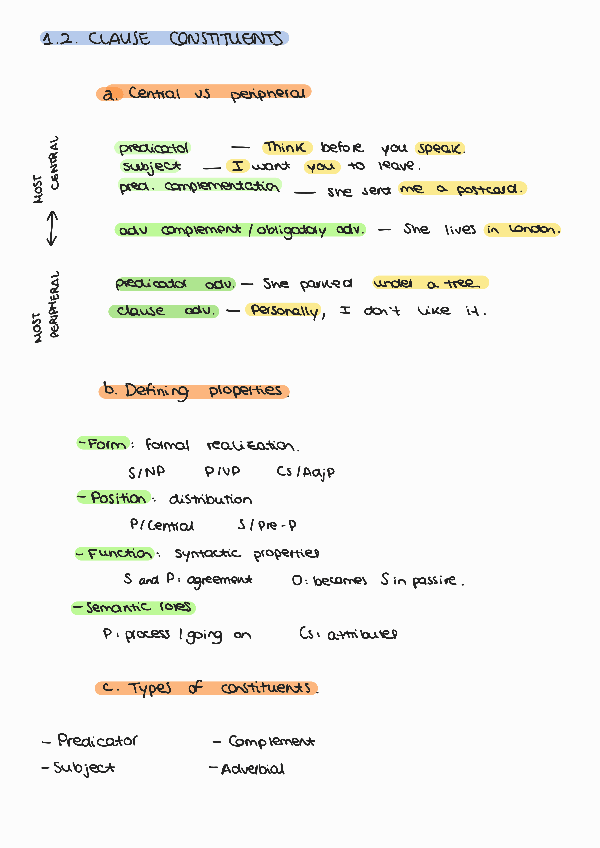 1.2. CLAUSE CONSTITUENTS
a. Central vs peripheral
MOST CENTRAL
predicator — Think before you speak.
subject — I want you to leave.
pred. complementation — she sent me a postcard.
adv complement / obligatory adv. — She lives in London.
MOST PERIPHERAL
predicator adv. — She parked under a tree
clause adv. — Personally, I don't like it.
b. Defining properties.
- Form: formal realization.
S/NP P/VP Cs/AdjP
- Position: distribution
P/Central S/Pre-P
- Function: syntactic properties
S and P: agreement O: becomes S in passive.
- Semantic roles
P: process / going on Cs: attributes
c. Types of constituents.
- Predicator - Complement
- Subject - Adverbial